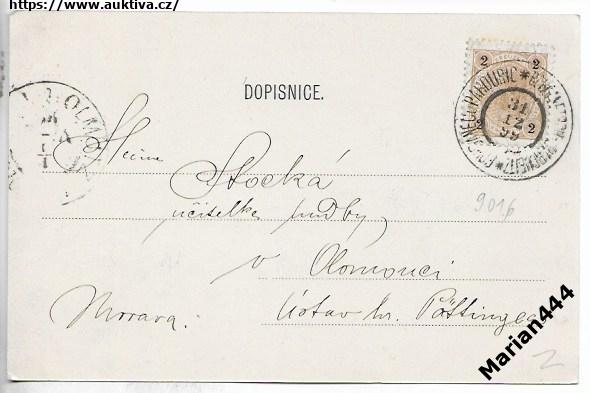 https://www.auktiva.cz/
DOPISNICE.
2 2
2 2
31
12
99
OLM
Slečna
Stocká
učitelka hudby
v Olomouci
Morava. Ústav hr. Pöttinga
9016
Marian444
2